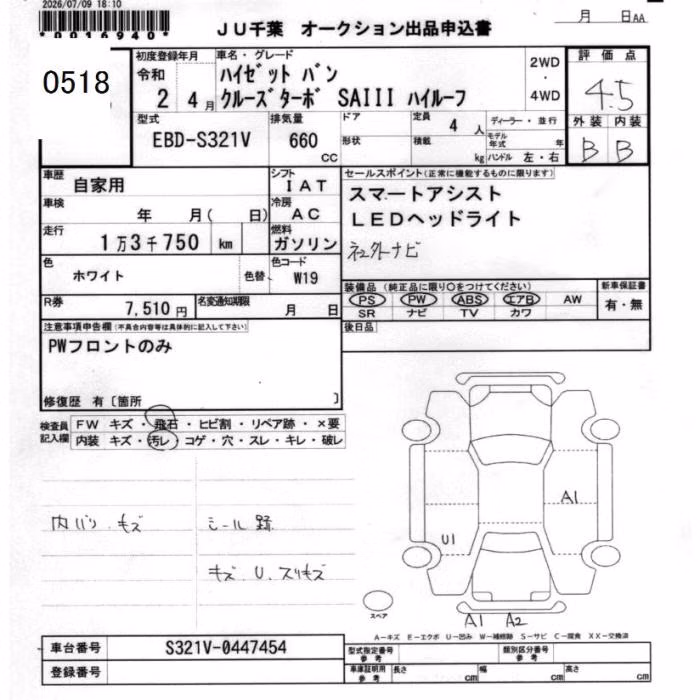 2026/07/09 18:10
*0016940*
JU千葉 オークション出品申込書
月 日 AA
0518
初度登録年月
令和
2年 4月
車名・グレード
ハイゼット バン
クルーズターボ SAIII ハイルーフ
2WD
・
4WD
評価点
4.5
外装 内装
B B
型式
EBD-S321V
排気量
660
cc
ドア
形状
定員
4人
積載
kg
ディーラー・並行
モデル年式 年
ハンドル 左・右
車歴
自家用
シフト
IAT
車検
年 月( 日)
冷房
AC
走行
1万3千750 km
燃料
ガソリン
色
ホワイト
色替
色コード
W19
R券
7,510円
名変通知期限
月 日
セールスポイント(正常に機能するものに限ります)
スマートアシスト
LEDヘッドライト
社外ナビ
装備品 (純正品に限り○をつけてください)
PS PW ABS エアB AW
SR ナビ TV カワ
新車保証書
有・無
後日品
注意事項申告欄(不具合内容等は具体的に記入して下さい)
PWフロントのみ
修復歴 有〔箇所 〕
検査員
記入欄
FW キズ・飛石・ヒビ割・リペア跡・×要
内装 キズ・汚レ・コゲ・穴・スレ・キレ・破レ
内バリ キズ
シール跡
キズ U. スリキズ
A1
U1
A1 A2
スペア
A-キズ E-エクボ U-凹み W-補修跡 S-サビ C-腐食 XX-交換済
車台番号
S321V-0447454
登録番号
型式指定番号
参考
類別区分番号
参考
車庫証明用
参考
長さ cm
幅 cm
高さ cm